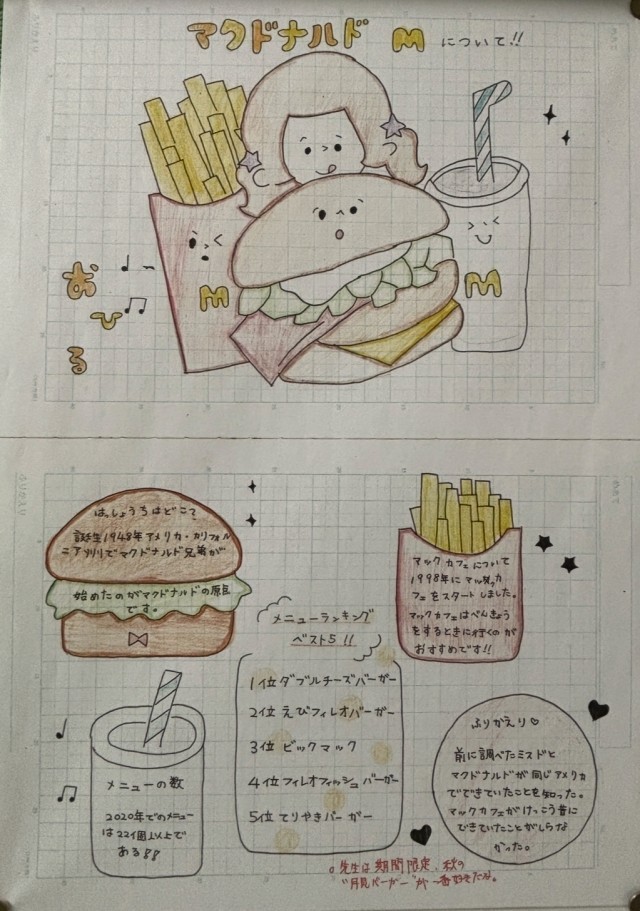 マクドナルド M について!!
M
M
おひる
はっしょうちはどこ?
誕生1948年アメリカ・カリフォル
ニアソリでマクドナルド兄弟が
始めたのがマクドナルドの原点
です。
マックカフェについて
1998年に
フェをスタートしました。
マックカフェはべんきょう
をするときに行くのが
おすすめです!!
メニューランキング
ベスト5!!
1位 ダブルチーズバーガー
2位 えびフィレオバーガー
3位 ビックマック
4位 フィレオフィッシュバーガー
5位 てりやきバーガー
メニューの数
2020年でのメニュー
は221個以上で
ある!!
ふりかえり♡
前に調べたミスドと
マクドナルドが同じアメリカ
でできていたことを知った。
マックカフェがけっこう昔に
できていたことがしらな
かった。
先生は期間限定、秋の
"月見バーガー"が一番好きだな。